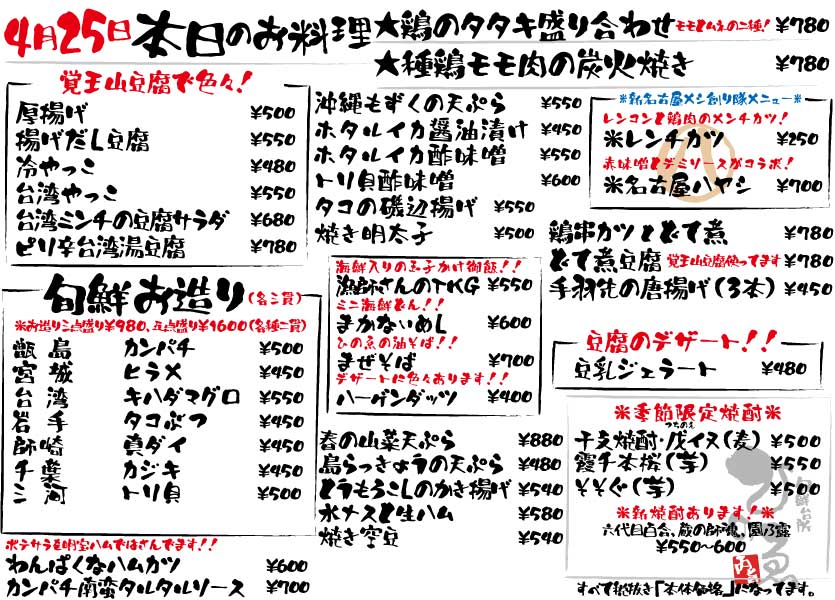 4月25日 本日のお料理
★鶏のタタキ盛り合わせ モモとムネの二種! ¥780
★種鶏モモ肉の炭火焼き ¥780
覚王山豆腐で色々!
厚揚げ ¥500
揚げだし豆腐 ¥550
冷やっこ ¥480
台湾やっこ ¥550
台湾ミンチの豆腐サラダ ¥680
ピリ辛台湾湯豆腐 ¥780
旬鮮お造り(各三貫)
※お造り三点盛り¥980、五点盛り¥1600(各種二貫)
甑島 カンパチ ¥500
宮城 ヒラメ ¥450
台湾 キハダマグロ ¥550
岩手 タコぶつ ¥450
師崎 真ダイ ¥450
千葉 カジキ ¥450
三河 トリ貝 ¥500
ポテサラを明宝ハムではさんでます!!
わんぱくなハムカツ ¥600
カンパチ南蛮タルタルソース ¥700
沖縄もずくの天ぷら ¥550
ホタルイカ醤油漬け ¥450
ホタルイカ酢味噌 ¥550
トリ貝酢味噌 ¥600
タコの磯辺揚げ ¥550
焼き明太子 ¥500
海鮮入りの玉子かけ御飯!!
漁師さんのTKG ¥550
ミニ海鮮どん!!
まかないめし ¥600
ひの魚の油そば!!
まぜそば ¥700
デザートに色々あります!!
ハーゲンダッツ ¥400
春の山菜天ぷら ¥880
島らっきょうの天ぷら ¥480
とうもろこしのかき揚げ ¥540
水ナスと生ハム ¥580
焼き空豆 ¥540
※新名古屋メシ創り隊メニュー※
レンコンと鶏肉のメンチカツ!
※レンチカツ ¥250
赤味噌とデミソースがコラボ!
※名古屋ハヤシ ¥700
鶏串カツとどて煮 ¥780
どて煮豆腐 覚王山豆腐使ってます ¥780
手羽先の唐揚げ(3本) ¥450
豆腐のデザート!!
豆乳ジェラート ¥480
※季節限定焼酎※
つちのえ
干支焼酎・戊イヌ(麦) ¥500
霞千本桜(芋) ¥550
そそぐ(芋) ¥500
※新焼酎あります!※
六代目百合、蔵の師魂、園乃露
¥550~600
すべて税抜き「本体価格」になってます。
旬鮮台所